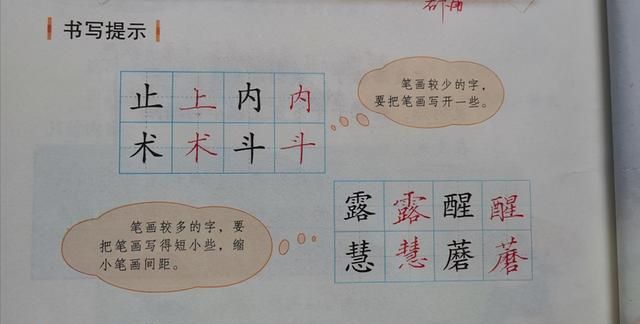 书写提示
止上内内
术术斗斗
笔画较少的字，
要把笔画写开一些。
露露醒醒
慧慧蘑蘑
笔画较多的字，要
把笔画写得短小些，缩
小笔画间距。